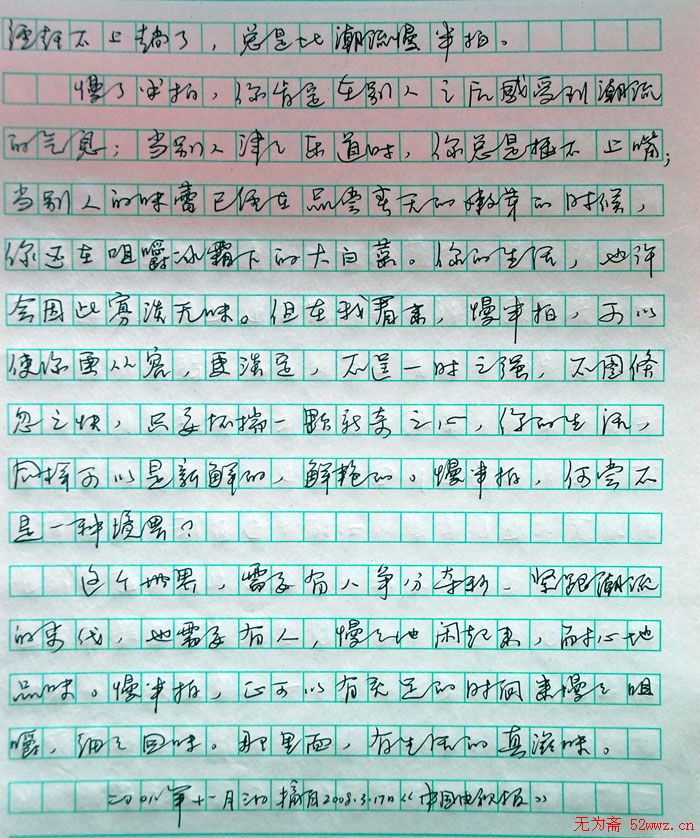 经赶不上趟了，总是比潮流慢半拍。
慢了半拍，你肯定在别人之后感受到潮流
的气息；当别人津々乐道时，你总是插不上嘴；
当别人的味蕾已经在品尝春天的嫩芽的时候，
你还在咀嚼冰霜下的大白菜。你的生活，也许
会因此寡淡无味。但在我看来，慢半拍，可以
使你更从容，更淡定，不逞一时之强，不图倏
忽之快，只要怀揣一颗新奇之心，你的生活，
同样可以是新鲜的，鲜艳的。慢半拍，何尝不
是一种境界？
这个世界，需要有人争分夺秒，紧跟潮流
的步伐，也需要有人，慢々地闲起来，耐心地
品味。慢半拍，正可以有充足的时间来慢々咀
嚼，细々回味。那里面，有生活的真滋味。
年十一月三日摘自2008.3.17日《中国电视报》
无为斋 52wwz.cn